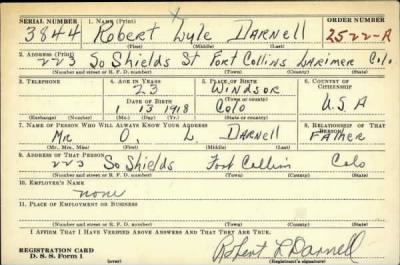 SERIAL NUMBER 1. NAME (Print) ORDER NUMBER
3844 Robert Lyle DARNELL 2522-A
(First) (Middle) (Last)
2. ADDRESS (Print)
223 So Shields St Fort Collins LARIMER Colo
(Number and street or R. F. D. number) (Town) (County) (State)
3. TELEPHONE 4. AGE IN YEARS 5. PLACE OF BIRTH 6. COUNTRY OF CITIZENSHIP
23 WINDSOR
DATE OF BIRTH (Town or county)
1 13 1918 Colo U.S.A
(Exchange) (Number) (Mo.) (Day) (Yr.) (State or country)
7. NAME OF PERSON WHO WILL ALWAYS KNOW YOUR ADDRESS 8. RELATIONSHIP OF THAT PERSON
Mr O. L. DARNELL FATHER
(Mr., Mrs., Miss) (First) (Middle) (Last)
9. ADDRESS OF THAT PERSON
223 So Shields Fort Collins Colo
(Number and street or R. F. D. number) (Town) (County) (State)
10. EMPLOYER'S NAME
none
11. PLACE OF EMPLOYMENT OR BUSINESS
(Number and street or R. F. D. number) (Town) (County) (State)
I AFFIRM THAT I HAVE VERIFIED ABOVE ANSWERS AND THAT THEY ARE TRUE.
REGISTRATION CARD
D. S. S. Form 1 Robert L Darnell
(Registrant's signature)